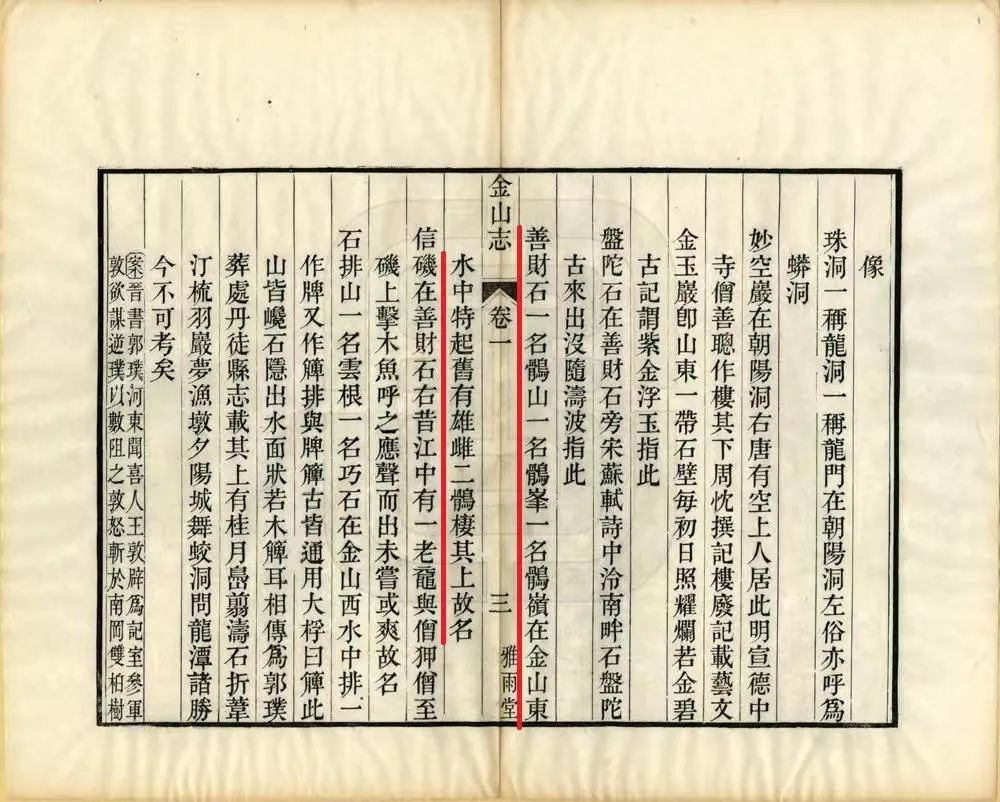 像
珠洞一稱龍洞一稱龍門在朝陽洞左俗亦呼爲
蟒洞
妙空巖在朝陽洞右唐有空上人居此明宣德中
寺僧善聰作樓其下周忱撰記樓廢記載藝文
金玉巖卽山東一帶石壁每初日照耀爛若金碧
古記謂紫金浮玉指此
盤陀石在善財石旁宋蘇軾詩中泠南畔石盤陀
古來出沒隨濤波指此
善財石一名鶻山一名鶻峯一名鶻嶺在金山東
金山志
卷一
三
雅雨堂
水中特起舊有雄雌二鶻棲其上故名
信磯在善財石右昔江中有一老黿與僧狎僧至
磯上擊木魚呼之應聲而出未嘗或爽故名
石排山一名雲根一名巧石在金山西水中排一
作牌又作簰排與牌簰古皆通用大桴曰簰此
山皆巉石隱出水面狀若木簰耳相傳爲郭璞
葬處丹徒縣志載其上有桂月嵒翦濤石折葦
汀梳羽巖夢漁墩夕陽城舞蛟洞問龍潭諸勝
今不可考矣
案晉書郭璞河東聞喜人王敦辟爲記室參軍
敦欲謀逆璞以數阻之敦怒斬於南岡雙柏樹